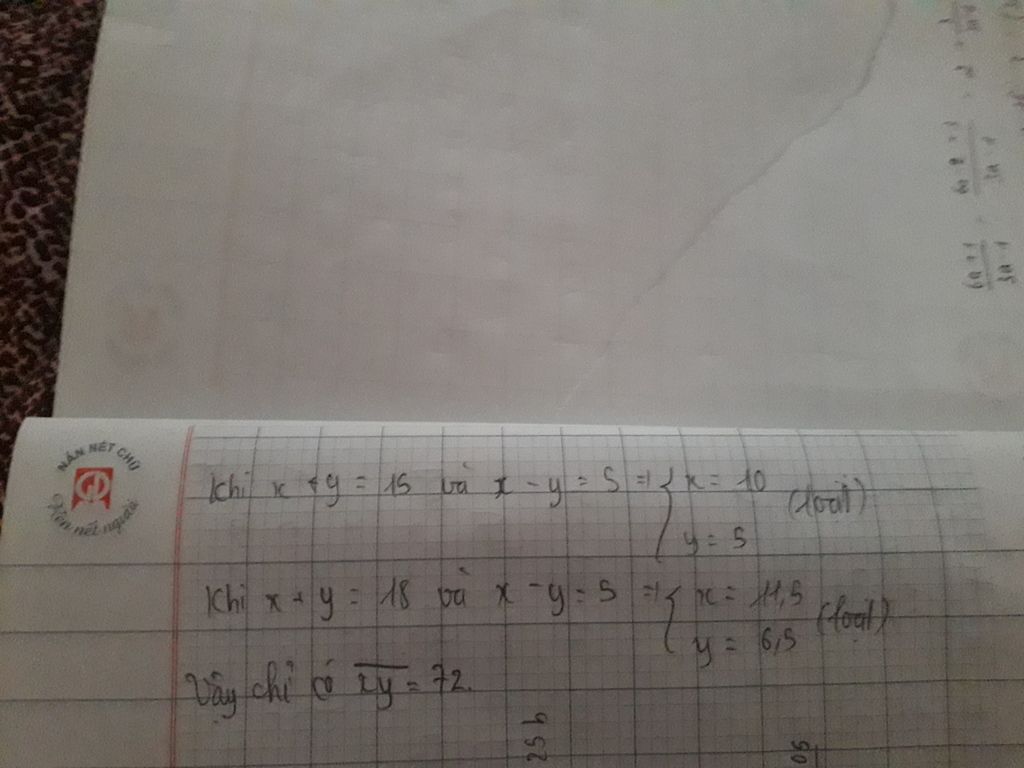 NẮN NÉT CHỮ
Rèn nết người
Khi x + y = 15 và x - y = 5 => { x = 10
y = 5 (loại)
Khi x + y = 18 và x - y = 5 => { x = 11,5
y = 6,5 (loại)
Vậy chỉ có xy = 72.
25 b